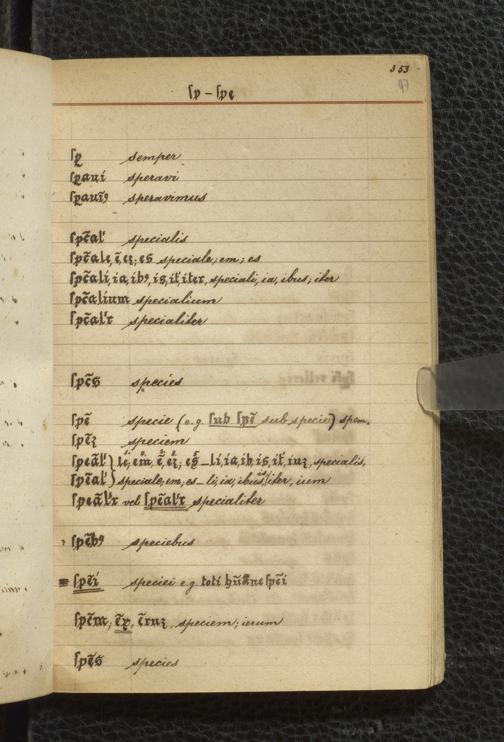 353
97
ſp – ſpę
ſꝑ semper
ſꝑaui speravi
ſꝑauı̃ꝯ speravimus
ſpc̃al' specialis
ſpc̃ale, ẽ, eʒ; es speciale, em; es
ſpc̃ali, ia, ibꝯ, is, it', iter, speciali, ia, ibus; iter
ſpc̃alium specialium
ſpc̃al'r specialiter
ſpẽs species
ſpẽ specie (e.g. ſub ſpẽ sub specie) spem.
ſpẽʒ speciem
ſpeãl' } le, em, ẽ, eʒ; es – li, ia, ib, is, it', iuʒ, specialis,
ſpẽal' } speciale, em, es – li, ia, ibus, iter, ium
ſpeãl'r vel ſpẽal'r specialiter
ſpẽbꝯ speciebus
ſpẽi speciei e.g. toti hũãne ſpẽi
ſpẽm, speciem; ierum
ſpẽs species